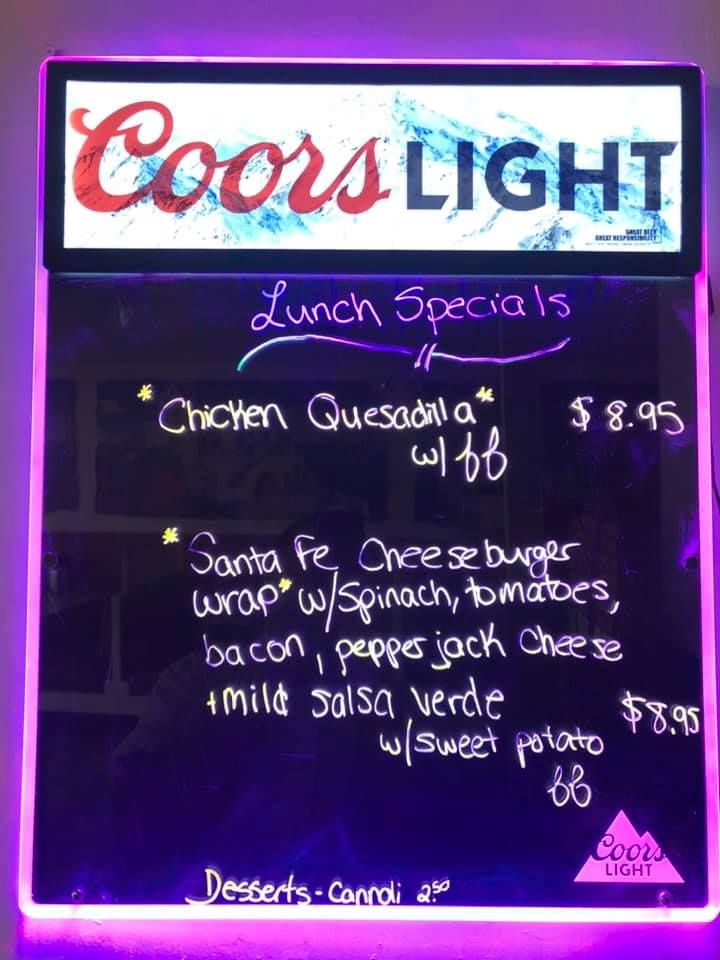 Coors LIGHT
GREAT BEER
GREAT RESPONSIBILITY
Lunch Specials
*Chicken Quesadilla* $8.95
w/ ff
*Santa Fe Cheeseburger
wrap* w/spinach, tomatoes,
bacon, pepper jack cheese
+mild salsa verde $8.95
w/sweet potato
ff
Coors
LIGHT
Desserts - Cannoli 2.50